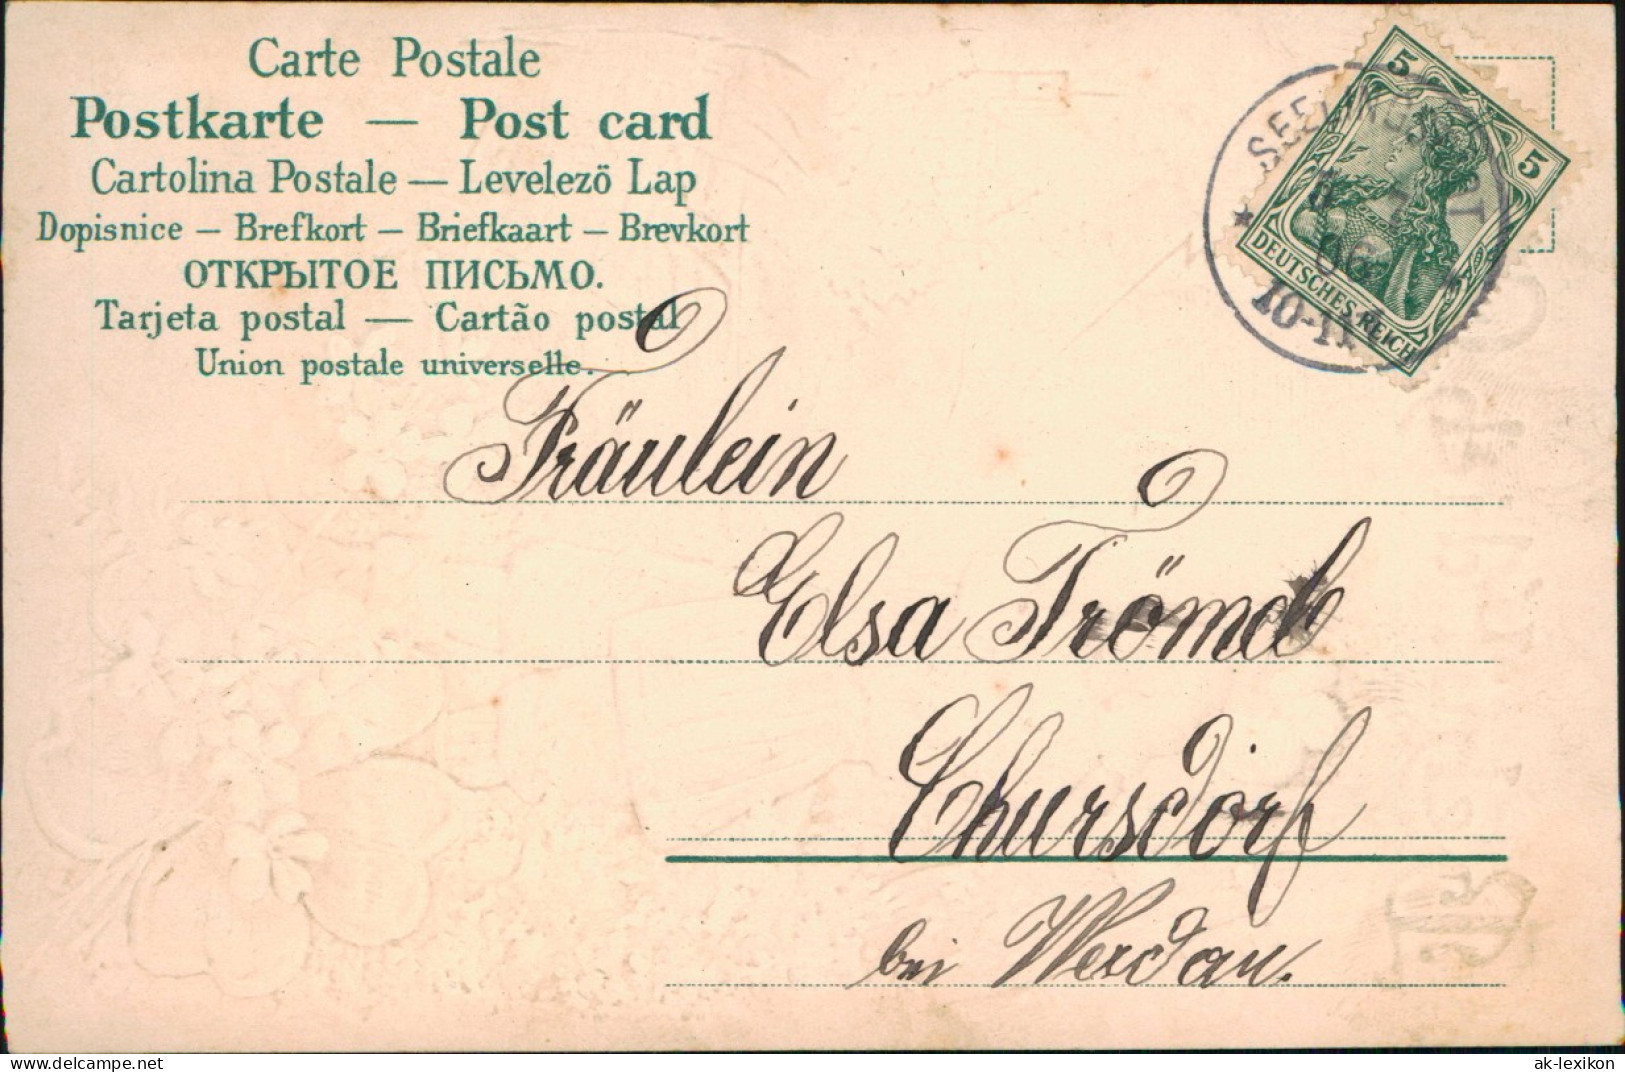 Carte Postale
Postkarte — Post card
Cartolina Postale — Levelezö Lap
Dopisnice — Brefkort — Briefkaart — Brevkort
ОТКРЫТОЕ ПИСЬМО.
Tarjeta postal — Cartão postal
Union postale universelle.
5
5
DEUTSCHES REICH
06
10-11
Fräulein
Elsa Trömel
Chursdorf
bei Werdau.
delcampe.net
ak-lexikon